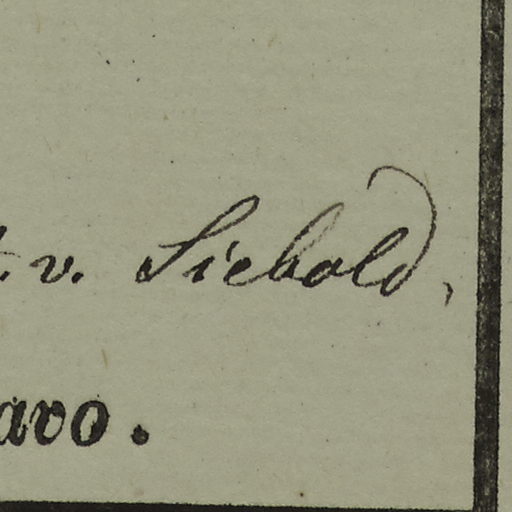 v. Siebold,
avo.